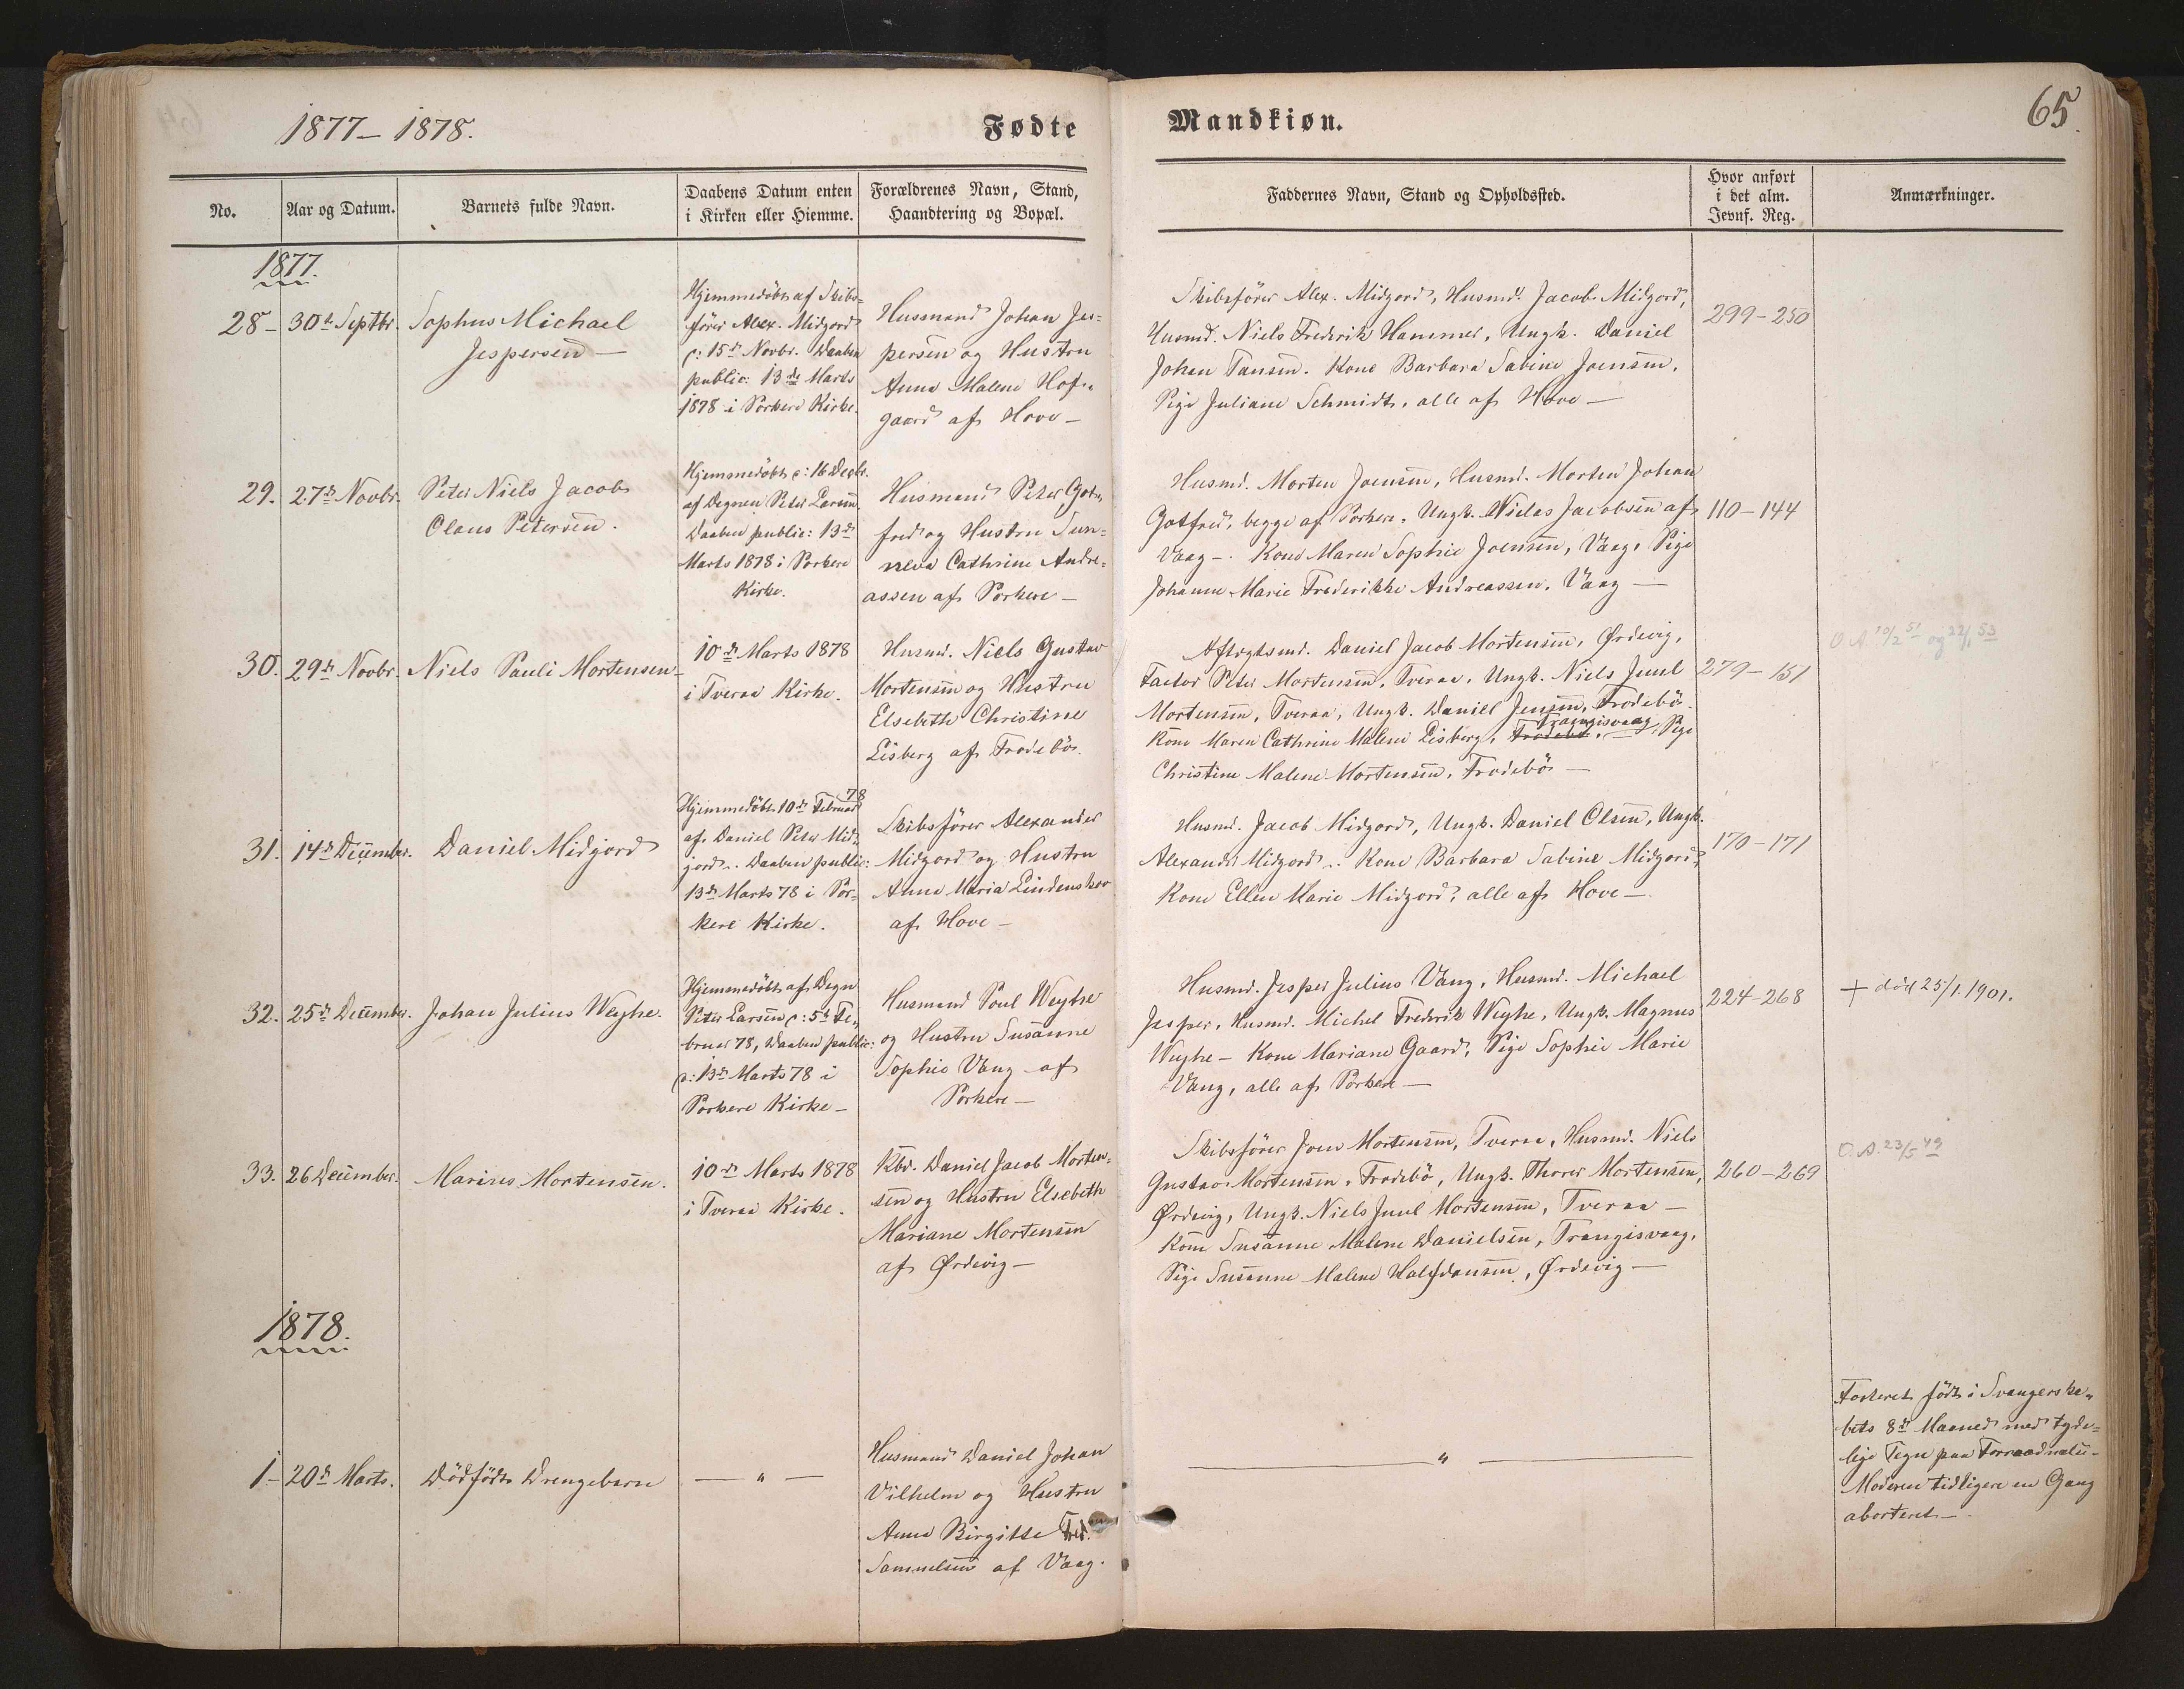 1877 – 1878.
Fødte
Mandkiøn.
65.
No.
Aar og Datum.
Barnets fulde Navn.
Daabens Datum enten
i Kirken eller Hiemme.
Forældrenes Navn, Stand,
Haandtering og Bopæl.
Faddernes Navn, Stand og Opholdssted.
Hvor anført
i det alm.
Jevnf. Reg.
Anmærkninger.
1877.
28 –
30te Septbr.
Sophus Michael
Jespersen –
Hjemmedöbt af Skibs-
förer Alex. Midgord
d: 15de Novbr. Daaben
public: 13de Marts
1878 i Porkere Kirke.
Husmand Johan Jes-
persen og Hustru
Anna Malene Hof-
gaard af Hove –
Skibsförer Alex. Midgord, Husmd. Jacob Midgord,
Husmd. Niels Frederik Hammer, Ungk. Daniel
Johan Tausen. Kone Barbara Sabine Joensen,
Pige Juliane Schmidt, alle af Hove –
299 – 250
29.
27de Novbr.
Peter Niels Jacob
Olaus Petersen.
Hjemmedöbt d: 16 Decbr.
af Degnen Peter Larsen.
Daaben public: 13de
Marts 1878 i Porkere
Kirke.
Husmand Peter Got-
fred og Hustru Sun-
neva Cathrine Andre-
assen af Porkere –
Husmd. Morten Joensen, Husmd. Morten Johan
Gotfred, begge af Porkere, Ungk. Niclas Jacobsen af
Vaag –. Kone Maren Sophie Joensen, Vaag, Pige
Johanne Marie Frederikke Andreassen, Vaag –
110 – 144
30.
29de Novbr.
Niels Pauli Mortensen –
10de Marts 1878
i Tveraa Kirke.
Husmd. Niels Gustav
Mortensen og Hustru
Elsebeth Christine
Lisberg af Frodebö.
Aftægtsmd. Daniel Jacob Mortensen, Ørdevig,
Factor Peter Mortensen, Tveraa, Ungk. Niels Juul
Mortensen, Tveraa, Ungk. Daniel Jensen, Frodebö.
Kone Maren Cathrine Malene Lisberg, Frodebö, Trangisvaag, Pige
Christine Malene Mortensen, Frodebö –
279 – 151
O A 10/2 51 og 22/1 53
31.
14de December.
Daniel Midgord
Hjemmedöbt 10de Februar 78
af Daniel Peter Mid-
gord –. Daaben public:
13de Marts 78 i Por-
kere Kirke.
Skibsförer Alexander
Midgord og Hustru
Anna Maria Lindenskov
af Hove –
Husmd. Jacob Midgord, Ungk. Daniel Olsen, Ungk.
Alexander Midgord –. Kone Barbara Sabine Midgord,
Kone Ellen Marie Midgord, alle af Hove –.
170 – 171
32.
25de December.
Johan Julius Weyhe.
Hjemmedöbt af Degn
Peter Larsen d: 5te Fe-
bruar 78, Daaben public:
d: 13de Marts 78 i
Porkere Kirke –
Husmand Poul Weyhe
og Hustru Susanne
Sophie Vang af
Porkere –
Husmd. Jesper Julius Vang, Husmd. Michael
Jesper, Husmd. Michel Frederik Weyhe, Ungk. Magnus
Weyhe – Kone Mariane Gaard, Pige Sophie Marie
Vang, alle af Porkere –
224 – 268
+ död 25/1.1901.
33.
26 December.
Marius Mortensen.
10de Marts 1878
i Tveraa Kirke.
Kbd. Daniel Jacob Morten-
sen og Hustru Elsebeth
Mariane Mortensen
af Ørdevig –
Skibsförer Joen Mortensen, Tveraa, Husmd. Niels
Gustav Mortensen, Frodebö, Ungk. Thorer Mortensen,
Ørdevig, Ungk. Niels Juul Mortensen, Tveraa –
Kone Susanne Malene Danielsen, Trangisvaag,
Pige Susanne Malene Halfdansen, Ørdevig –
260 – 269
O. A. 23/5 49
1878.
1 –
20de Marts.
Dödfödt Drengebarn
— " —
Husmand Daniel Johan
Vilhelm og Hustru
Anna Birgitte Fred.
Samuelsen af Vaag.
— " —
Fosteret födt i Svangerska-
bets 8de Maaned med tyde-
lige Tegn paa Forraadnelse –
Moderen tidligere en Gang
aborteret –.